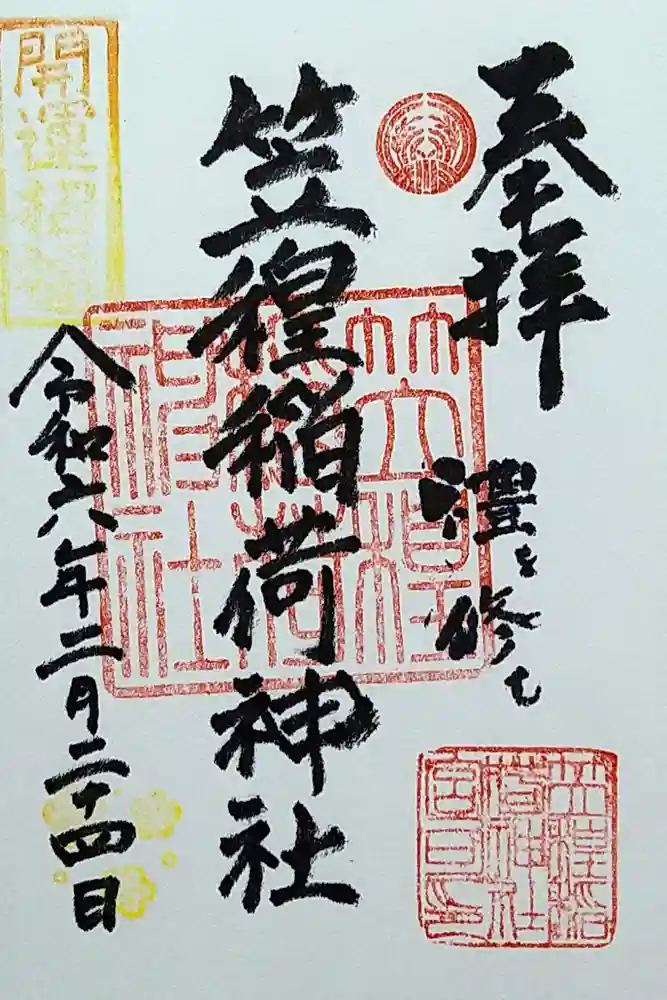 奉拝
禮を修む
笠䅣稲荷神社
令和六年二月二十四日
開運
笠䅣稲荷神社
笠䅣稲
荷神社
宮司印